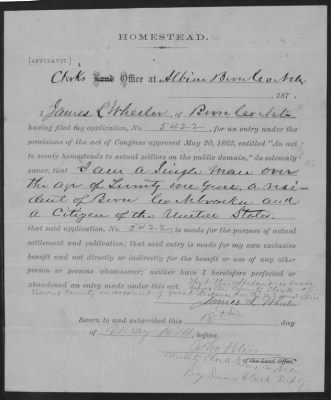 HOMESTEAD.
[AFFIDAVIT.]
Clerks Land Office at Albion Boone Co Neb
187
I, James L Wheeler, of Boone Co Neb
having filed my application, No. 5422, for an entry under the
provisions of the act of Congress approved May 20, 1862, entitled "An act
to secure homesteads to actual settlers on the public domain," do solemnly
swear, that I am a Single man over
the age of Twenty one years, a resi
dent of Boone Co Nebraska and
a Citizen of the United States
that said application, No. 5422, is made for the purpose of actual
settlement and cultivation; that said entry is made for my own exclusive
benefit and not directly or indirectly for the benefit or use of any other
person or persons whomsoever; neither have I heretofore perfected or
abandoned an entry made under this act. that this affidavit is made
before the County Clerk of
Boone County on account of great distance
James L Wheeler
Sworn to and subscribed this 18 day
of May 1874, before
County Clerk Boone Co
of the Land Office.
By Clark Depty